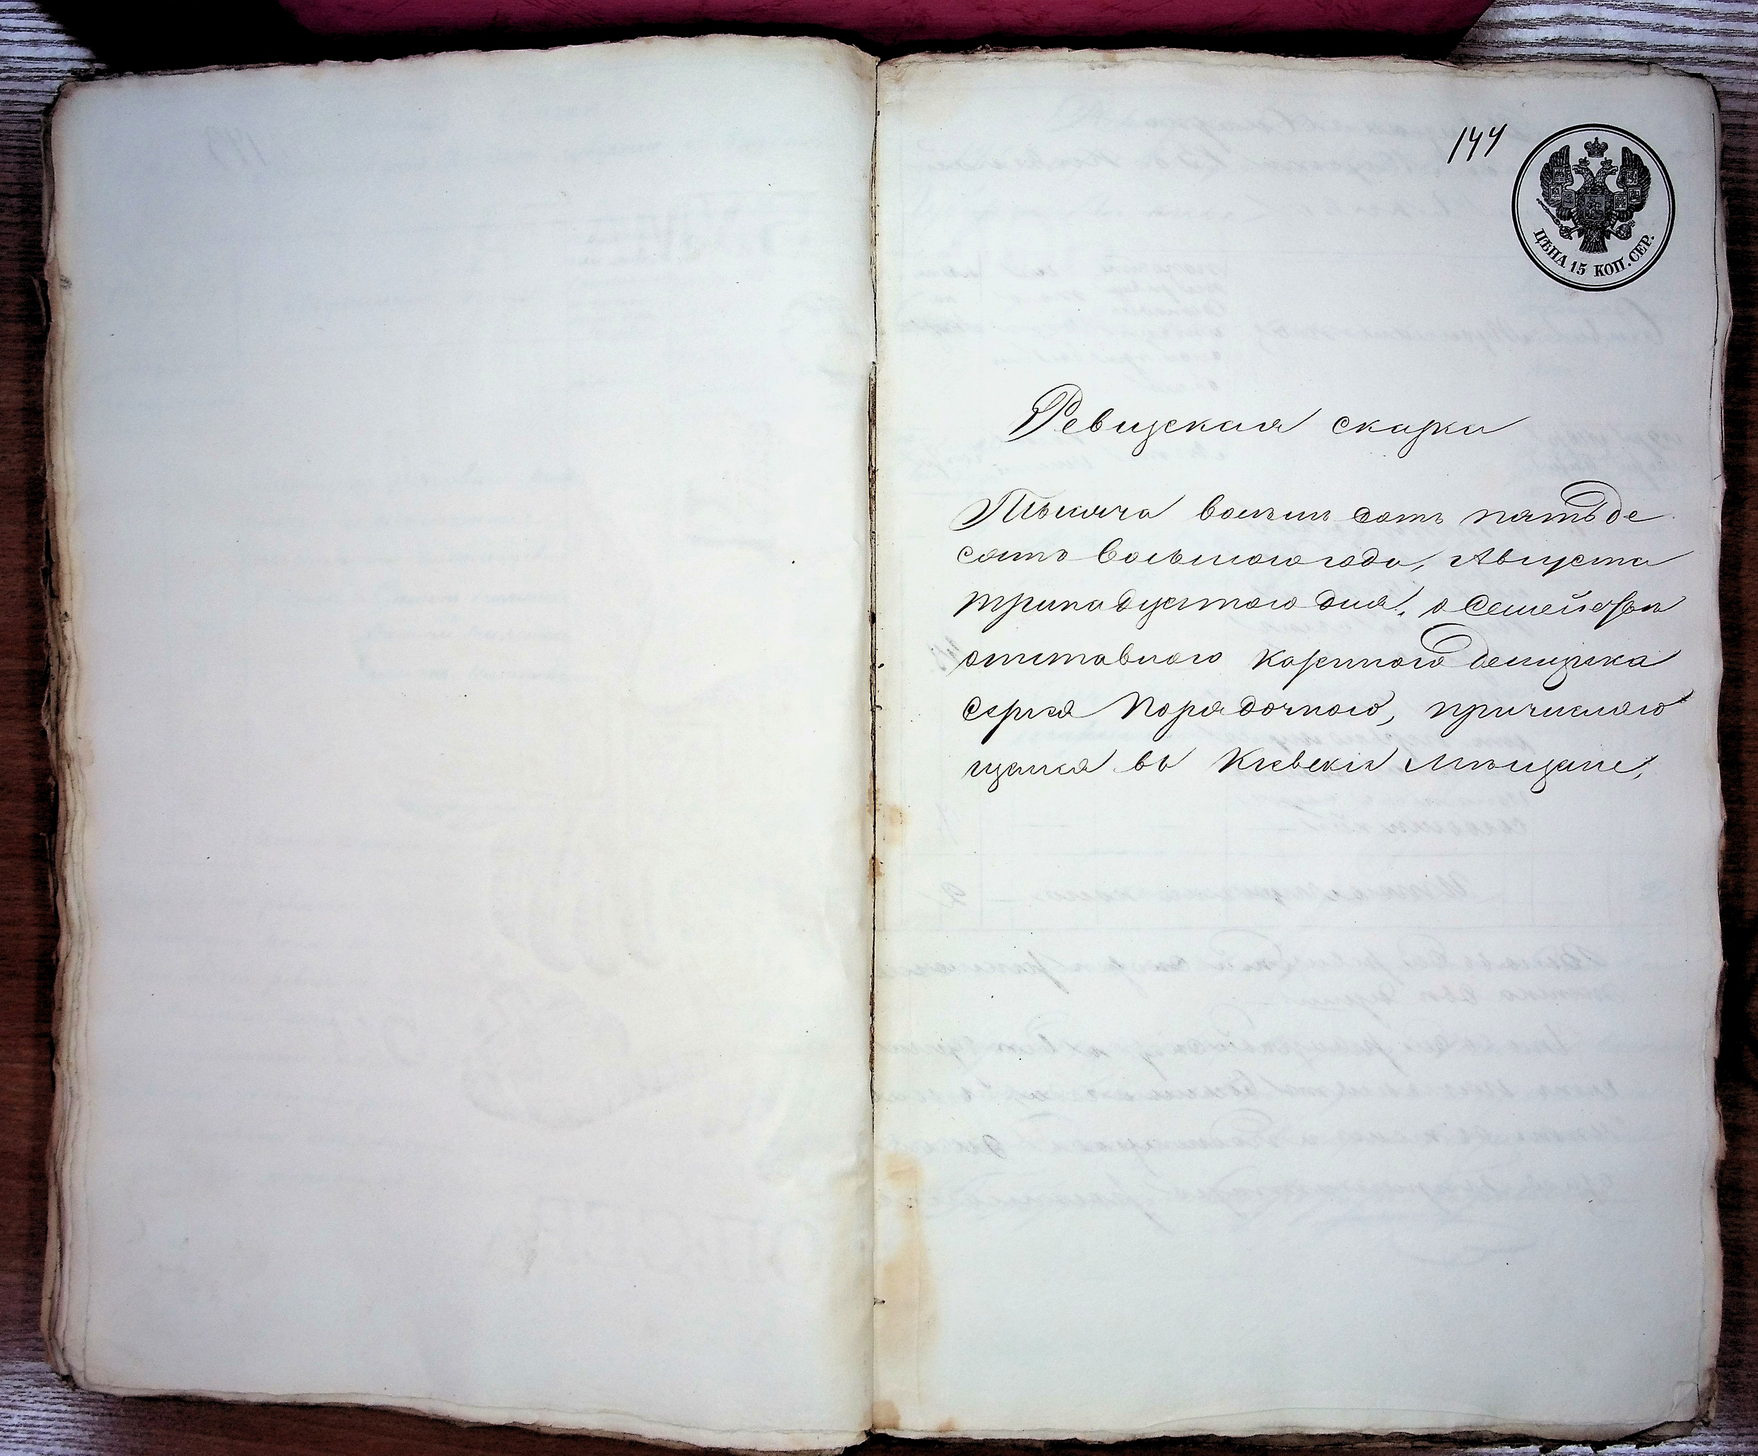 144
ЦѢНА 15 КОП. СЕР.
Ревизская сказка
Тысяча восемь сотъ пятьде
сятъ восьмого года, Августа
тринадцатого дня, о семействѣ
отставного казенного деньщика
Сергея Порядочного, причисляю
щемся въ Кіевскія Мѣщане,